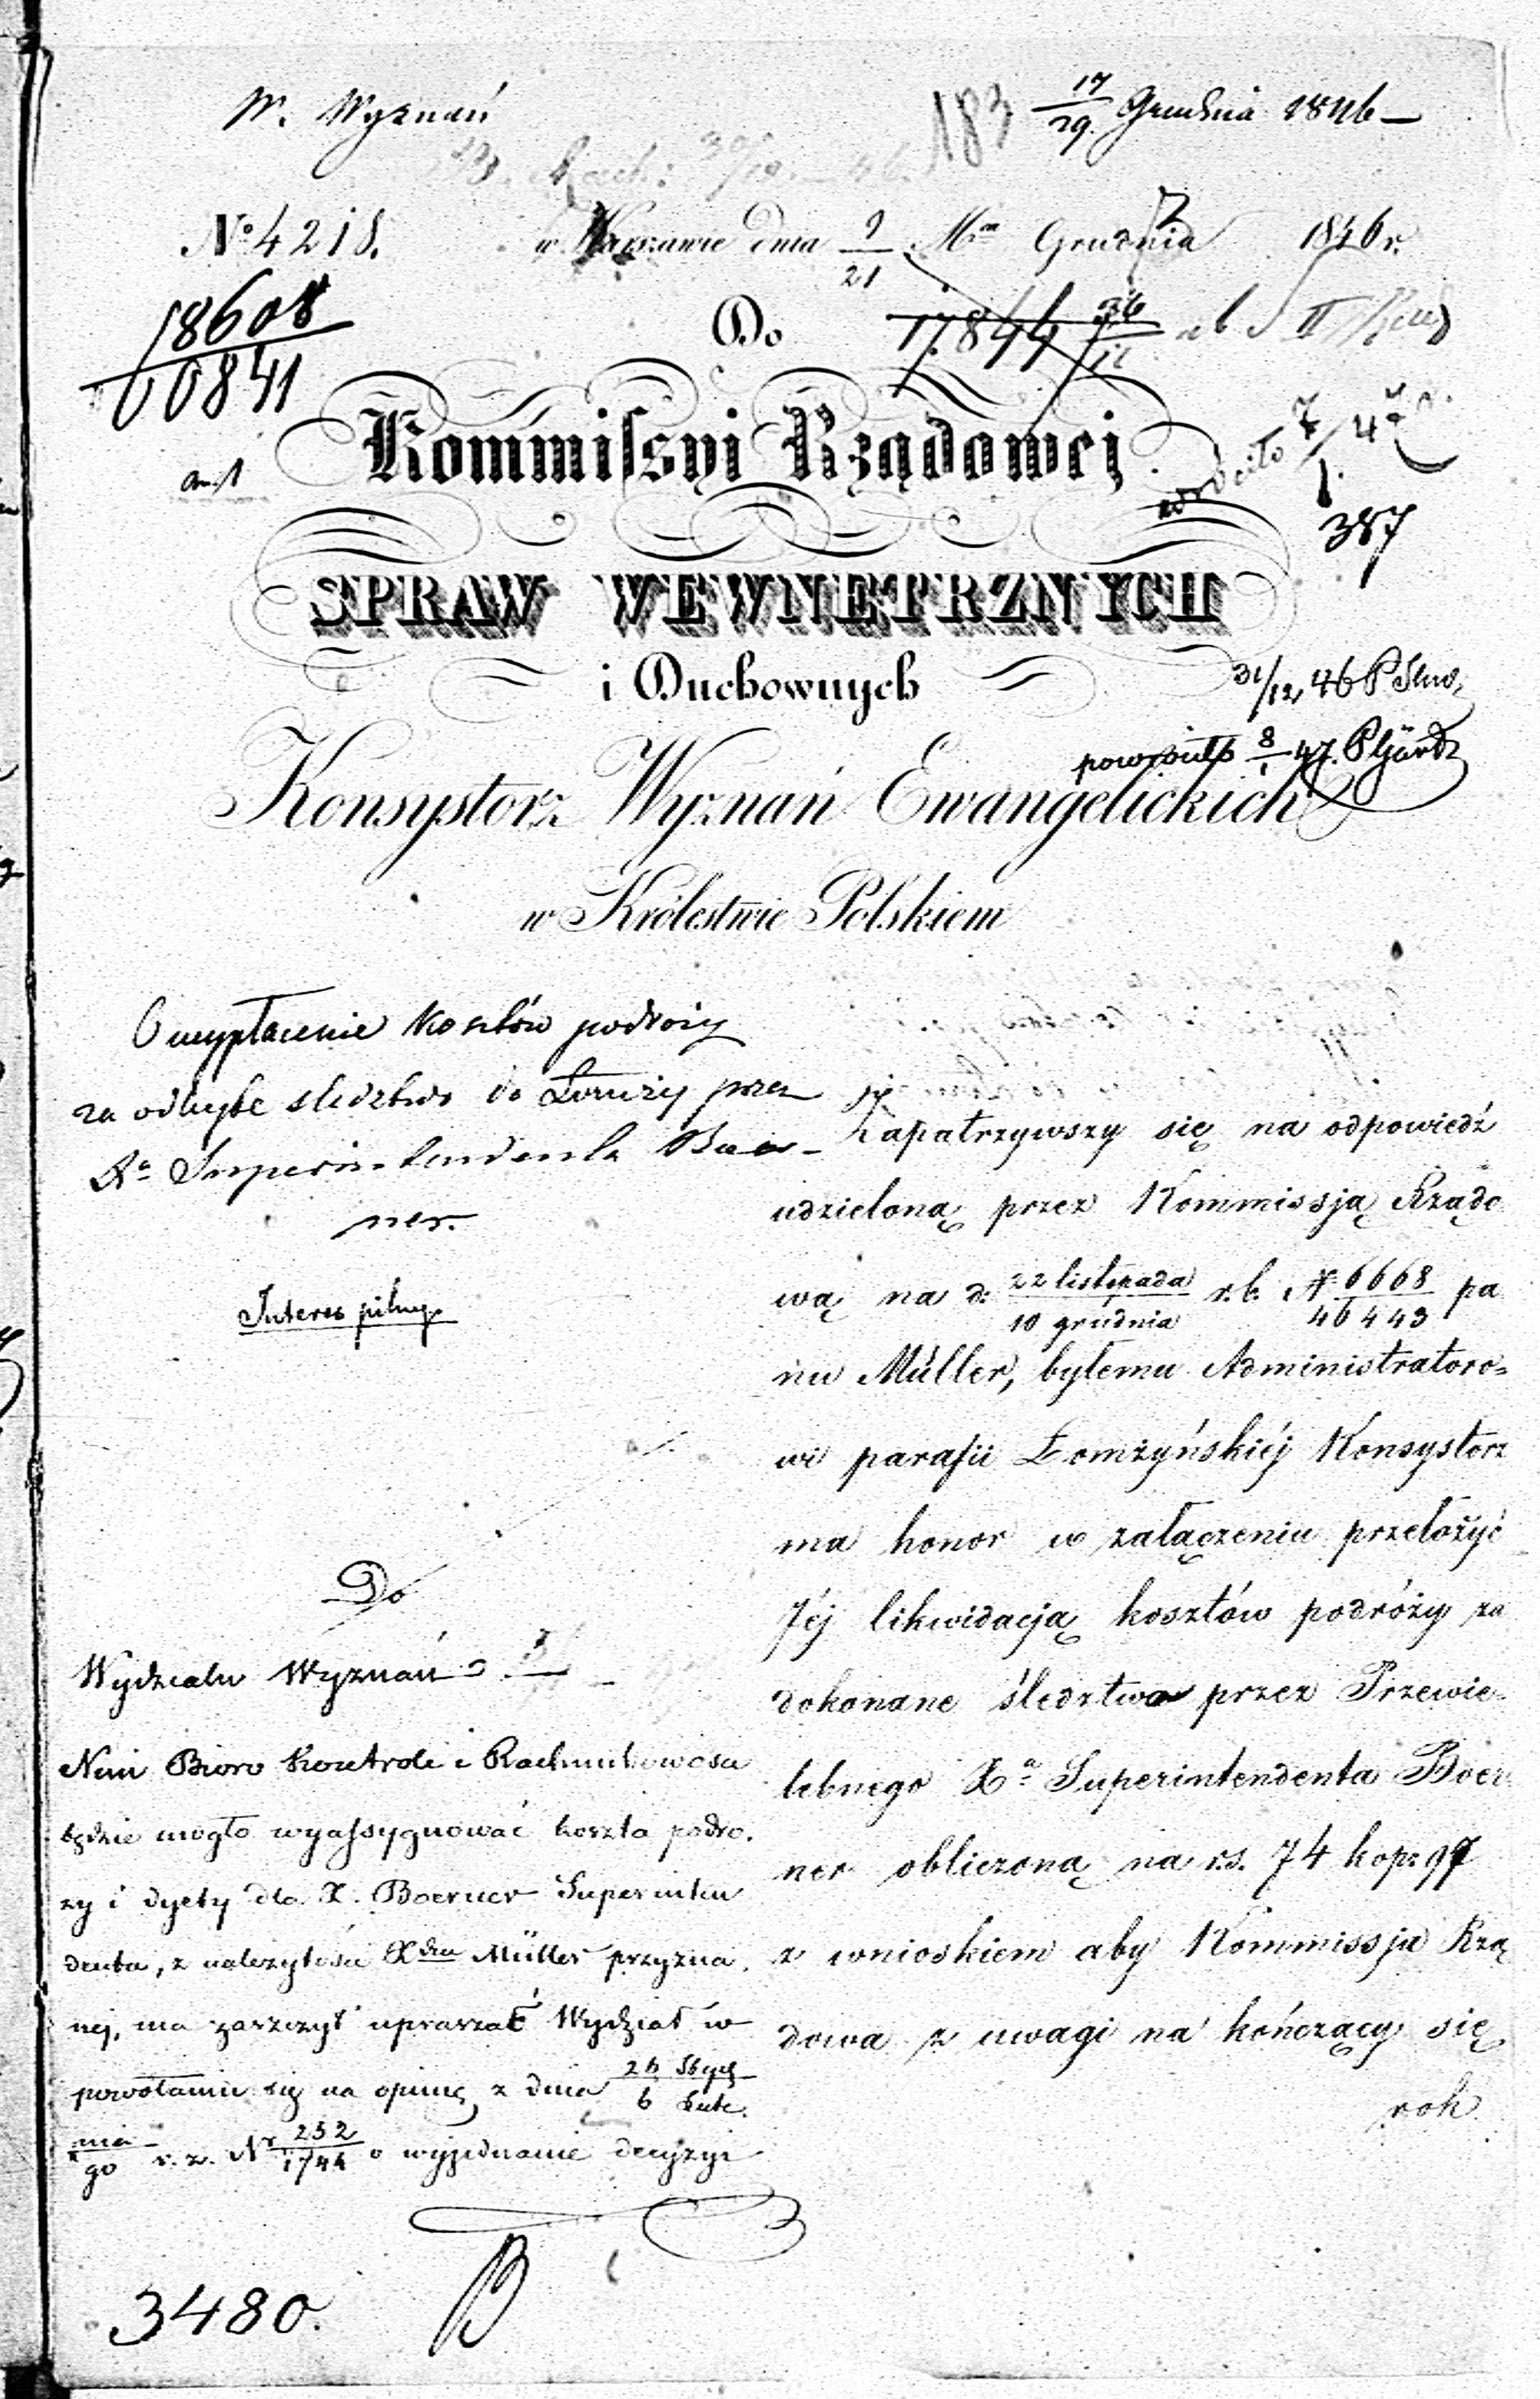 W. Wyznań
183
17/29 Grudnia 1846
No 4218.
w Warszawie dnia 9/21 Mca Grudnia 1846 r.
18608
60841
Do
17844 26/12
Kommissyi Rządowej
wróciło 7/1. 4
387
SPRAW WEWNETRZNYCH
i Duchownych
31/12 46 P
powróciło 8/1 47. P
Konsystorz Wyznań Ewangelickich
w Królestwie Polskiem
O wypłacenie kosztów podroży
za odbyte sledztwo do Łomży przez
Xa Superintendenta Boer-
ner.
Interes pilny
Zapatrzywszy się na odpowiedź
udzieloną przez Kommissją Rządo
wą na d: 22 listopada/10 grudnia r.b. N 6668/46443 pa
nu Müller, byłemu Administratoro=
wi parafii Łomżyńskiéj Konsystorz
ma honor w załączeniu przełożyć
Jéj likwidacją kosztów podróży za
dokonane śledztwo przez Przewie-
lebnego Xa Superintendenta Boer
ner obliczoną na r.s. 74 kop: 97
z wnioskiem aby Kommissja Rzą
dowa z uwagi na kończący się
rok
Do
Wydziału Wyznań
Nim Biuro Kontroli i Rachunkowości
będzie mogło wyassygnować koszta podro.
ży i dyety dla X. Boerner Superinten
denta, z należytości Xdza Müller przyzna.
nej, ma zaszczyt upraszać Wydział w
powołaniu się na opinię z dnia 24 Stycz/6 Lute.
nia/go r. z. Nr 252/1744 o wyjednanie decyzyi
B
3480.